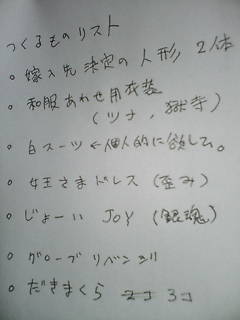 つくるものリスト
○ 嫁入先決定の人形 2体
○ 和服あわせ用衣装
(ツナ, 獄寺)
○ 白スーツ ←個人的に欲しい。
○ 女王さまドレス (歪み)
○ じょーい JOY (銀魂)
○ グローブ リベンジ
○ だきまくら 3コ